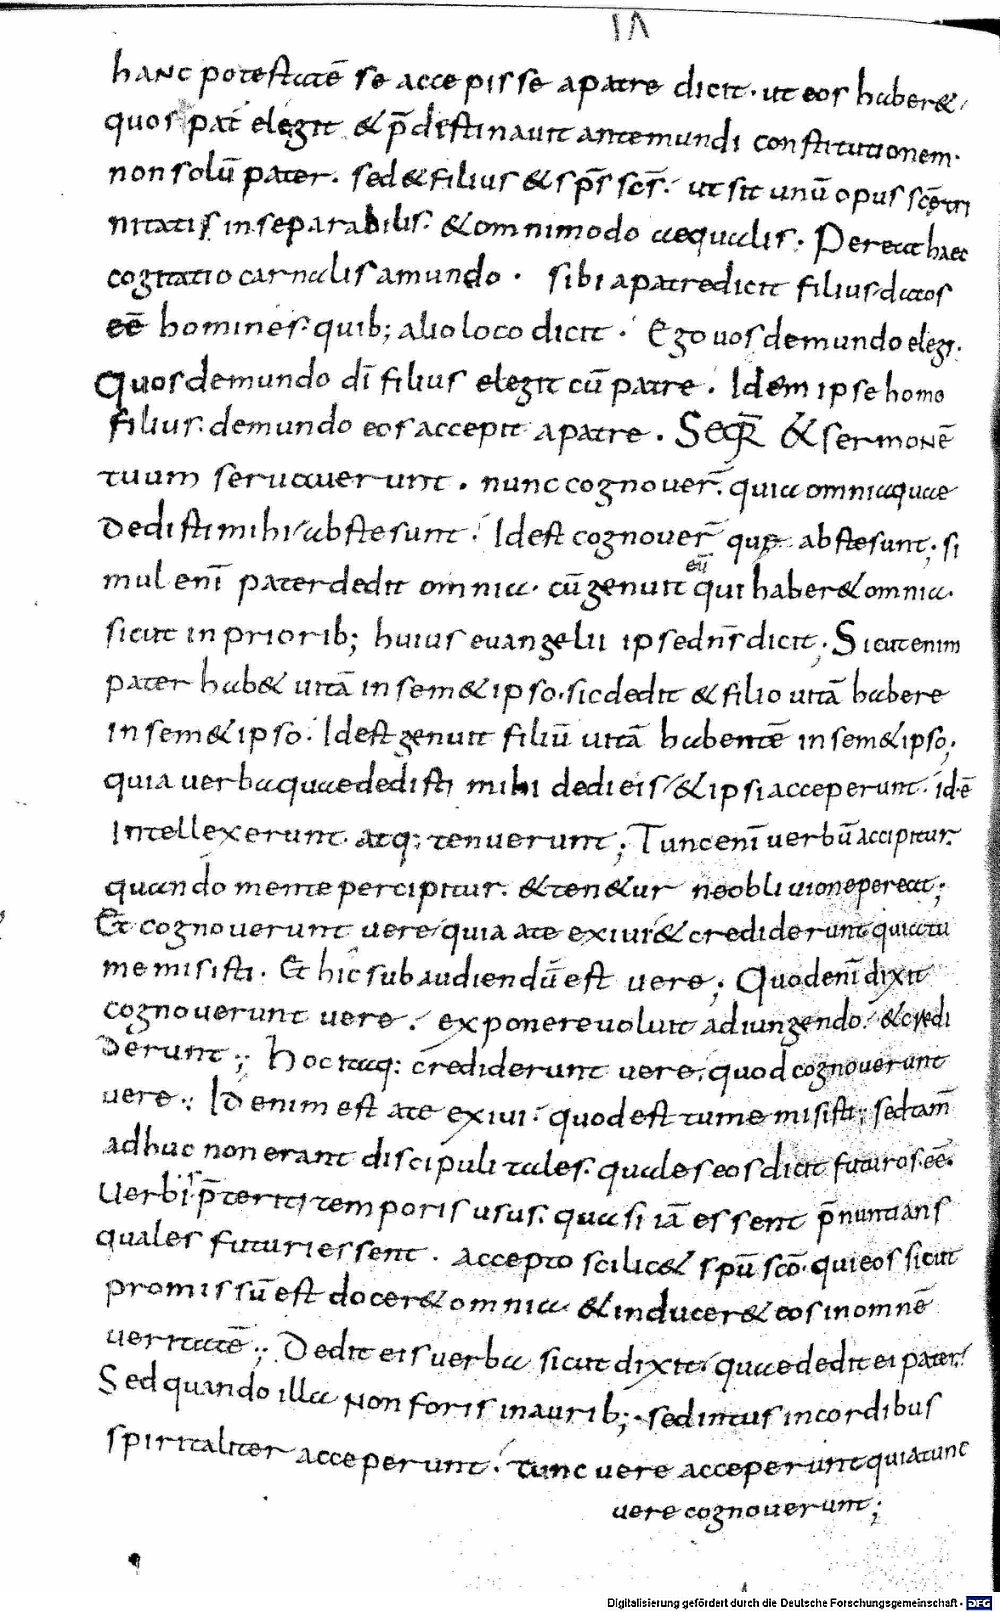 hanc potestatē se accepisse apatre dicit· ut eos haber&
quos pat̄ elegit & p̄destinauit antemundi constitutionem·
non solū pater· sed & filius & sp̄s sc̄s· ut sit unū opus sc̄etri
nitatis inseparabilis· & omnimodo aequalis· Pereat haec
cogitatio carnalis amundo · sibi apatredicit filius datos
eē homines· quib; alio loco dicit · Ego uos demundo elegi·
Quos demundo dī filius elegit cū patre · Idem ipse homo
filius· demundo eos accepit apatre · Seqr̄ & sermonē
tuum seruauerunt · nunc cognouer̄· quia omnia quae
dedisti mihi abste sunt · Idest cognouer̄ quę abste sunt; si
mul enī pater dedit omnia· cū genuit eū qui haber& omnia·
sicut in priorib; huius euangelii ipse dn̄s dicit; Sicut enim
pater hab& uitā in sem&ipso· sic dedit & filio uitā habere
in sem&ipso· Idest genuit filiū uitā habentē in sem&ipso;
quia uerba quae dedisti mihi dedi eis / & ipsi acceperunt· id·ē
Intellexerunt· atq: tenuerunt; Tunc enī uerbū accipitur·
quando mente percipitur· & ten&ur ne obliuione pereat;
Et cognouerunt uere quia ate exiui & crediderunt quia tu
me misisti · Et hic subaudiendū est uere; Quod enī dixit
cognouerunt uere · exponere uoluit adiungendo· & credi
derunt ; Hoc itaq: crediderunt uere, quod cognouerunt
uere ; Id enim est ate exiui · quodest tu me misisti; sed tam̄
adhuc non erant discipuli tales· quales eos dicit futuros·eē·
Uerbis p̄teriti temporis usus· quasi iā essent p̄nuntians
quales futuri essent · accepto scilic& spū scō· qui eos sicut
promissū est docer& omnia & inducer& eos in omnē
ueritatē ; Dedit eis uerba sicut dixit· quae dedit ei pater·
Sed quando illa non foris in aurib;· sed intus in cordibus
spiritaliter acceperunt · tunc uere acceperunt quia tunc
uere cognouerunt;
Digitalisierung gefördert durch die Deutsche Forschungsgemeinschaft - DFG